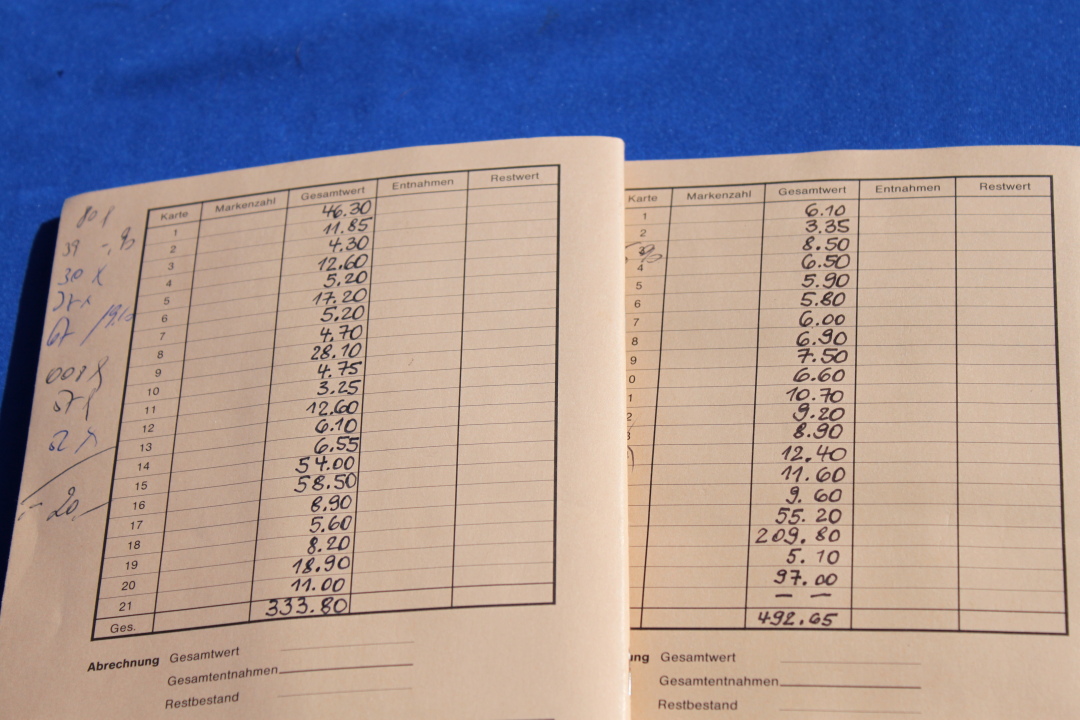 Karte Markenzahl Gesamtwert Entnahmen Restwert
1 46.30
2 11.85
3 4.30
4 12.60
5 5.20
6 17.20
7 5.20
8 4.70
9 28.10
10 4.75
11 3.25
12 12.60
13 6.10
14 6.55
15 54.00
16 58.50
17 8.90
18 5.60
19 8.20
20 18.90
21 11.00
Ges. 333.80
Abrechnung Gesamtwert
Gesamtentnahmen
Restbestand
20.–
Karte Markenzahl Gesamtwert Entnahmen Restwert
1 6.10
2 3.35
3 8.50
4 6.50
5 5.90
6 5.80
7 6.00
8 6.90
9 7.50
0 6.60
1 10.70
2 9.20
3 8.90
12.40
11.60
9.60
55.20
209.80
5.10
97.00
– –
492.65
ung Gesamtwert
Gesamtentnahmen
Restbestand